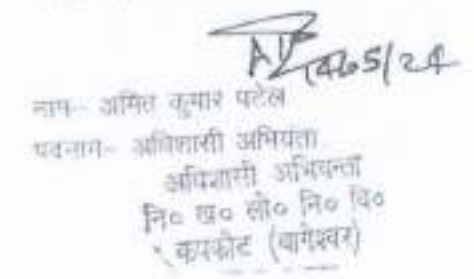 नाम- अमित कुमार पटेल
पदनाम- अधिशासी अभियंता
अधिशासी अभियन्ता
नि० ख० लो० नि० वि०
कपकोट (बागेश्वर)